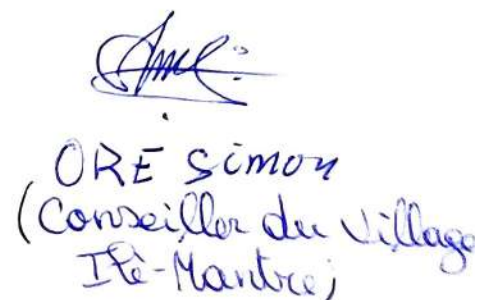 ORE Simon
(Conseiller du Village
Ilè-Mantre)